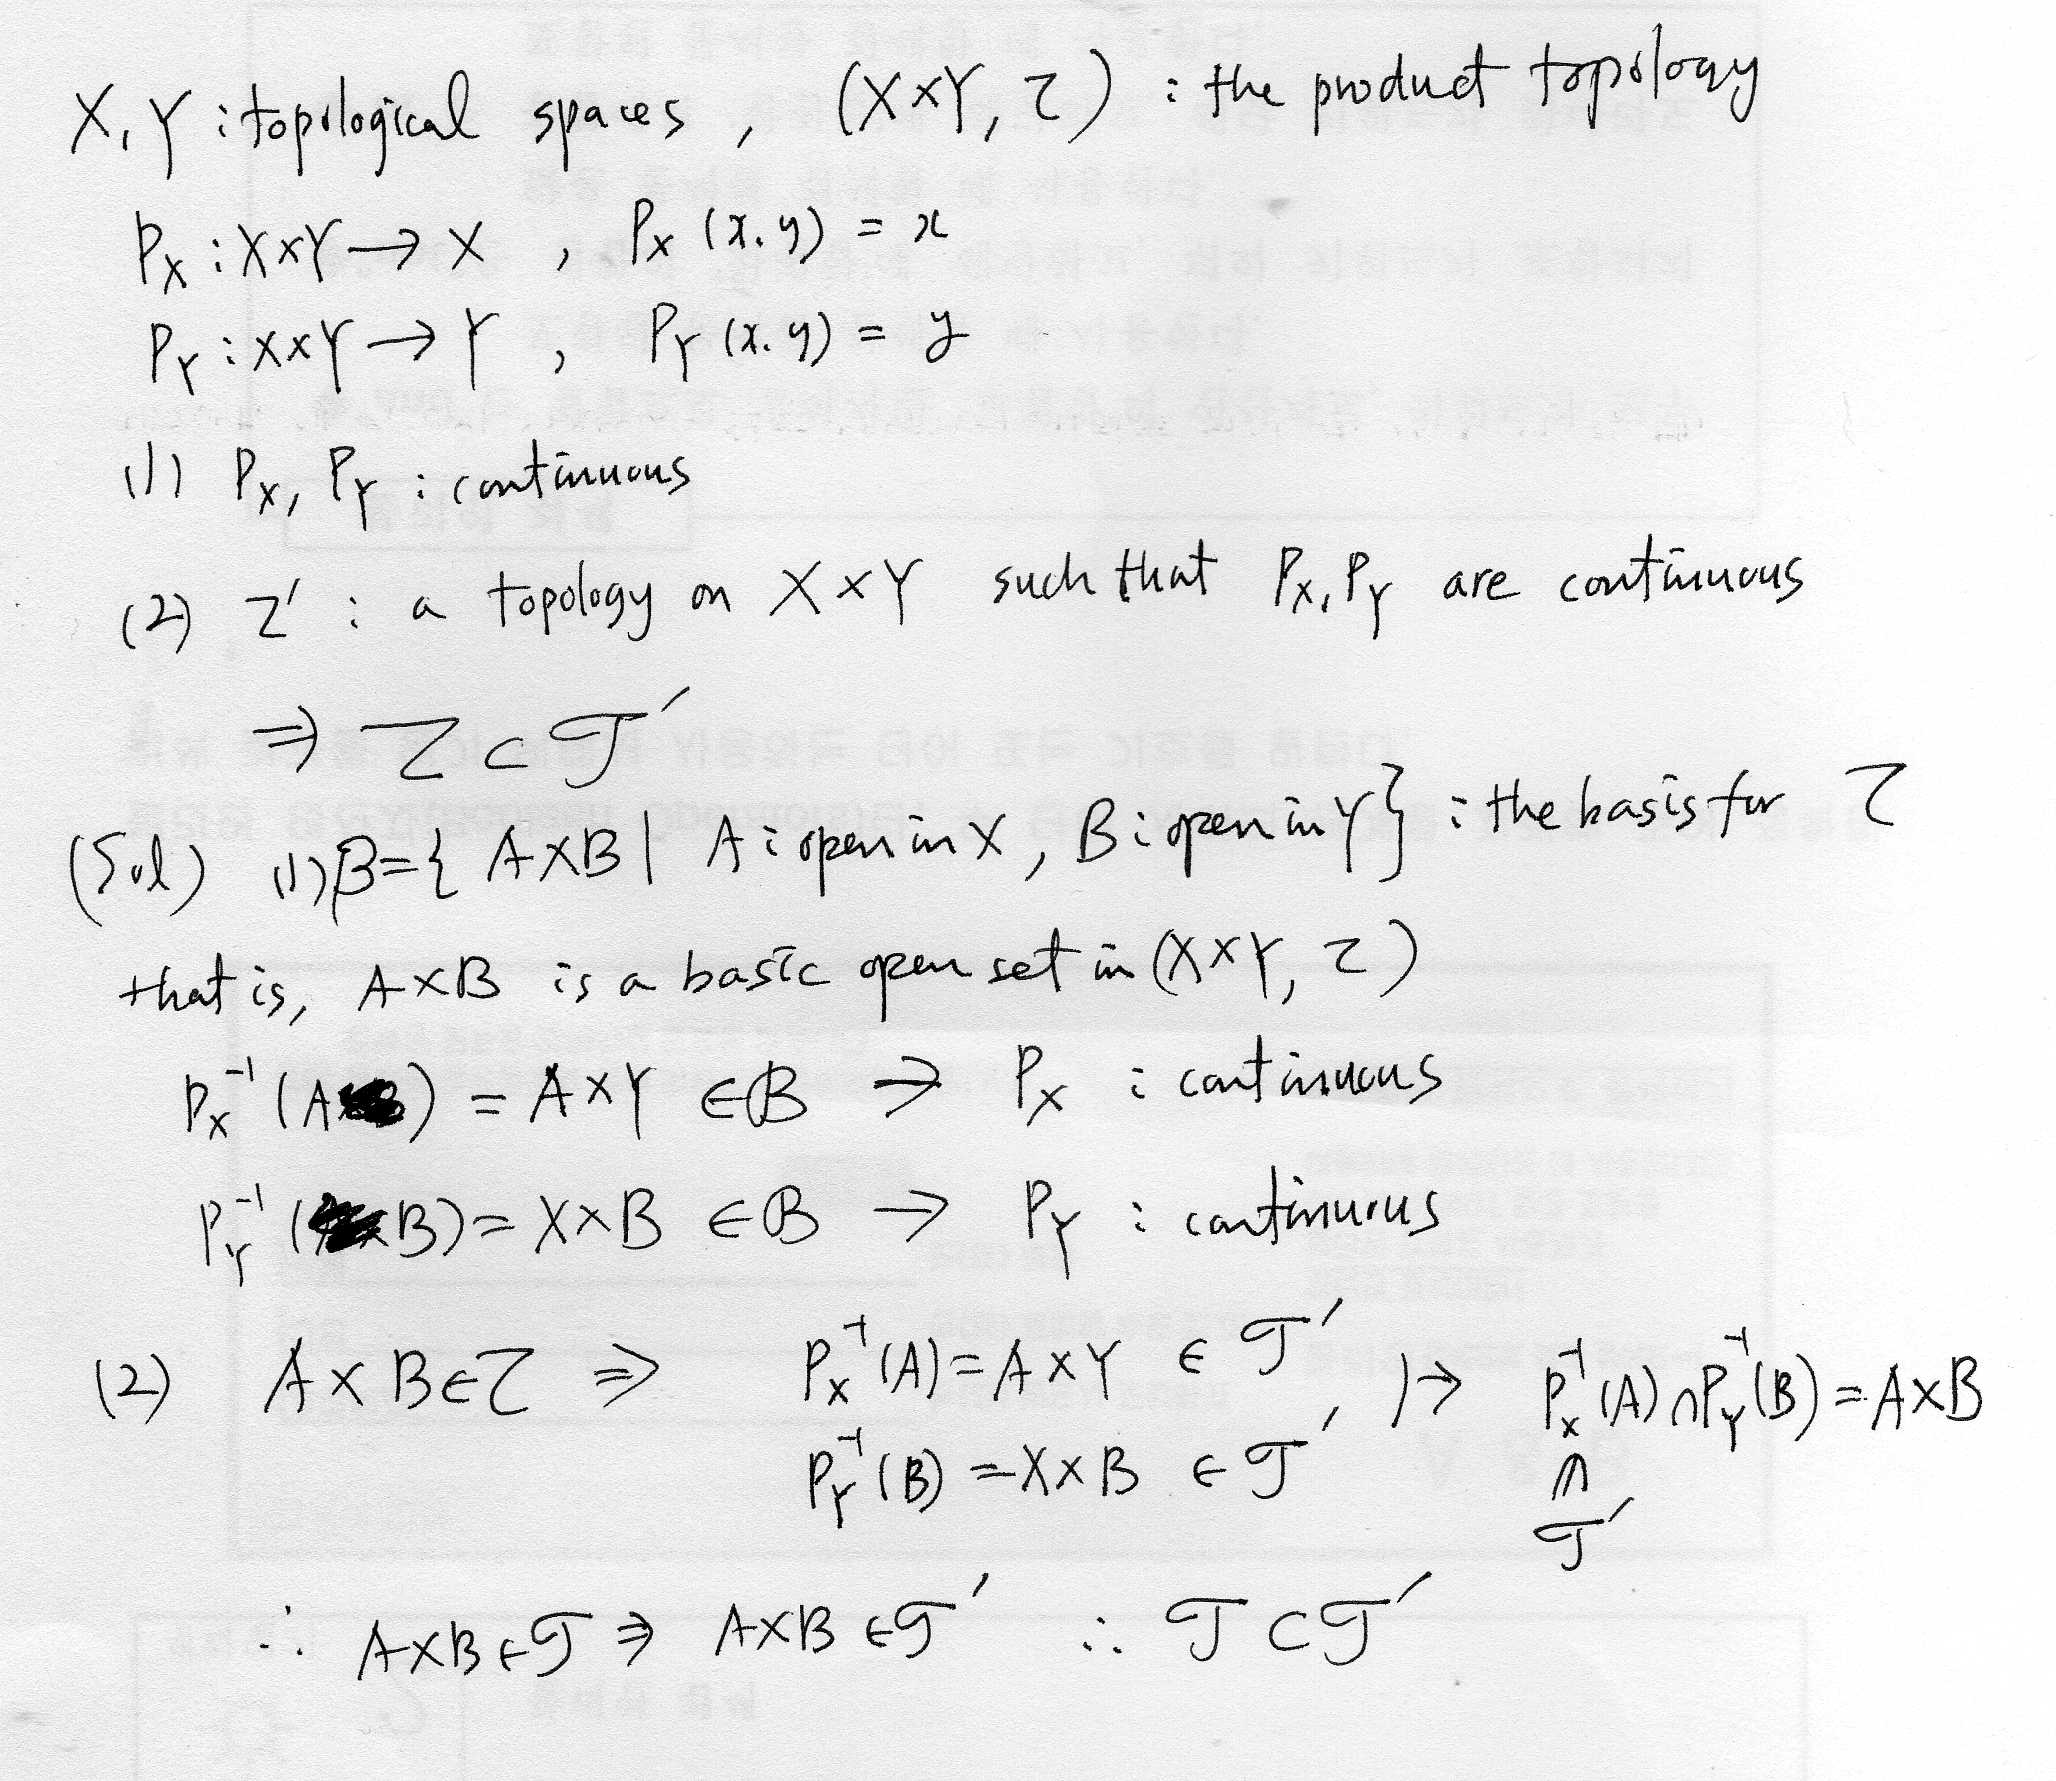 X, Y : topological spaces, (X×Y, τ) : the product topology
P_X : X×Y → X , P_X (x, y) = x
P_Y : X×Y → Y , P_Y (x, y) = y
(1) P_X, P_Y : continuous
(2) τ' : a topology on X×Y such that P_X, P_Y are continuous
⇒ τ ⊂ 𝒯'
(Sol) (1) 𝓑 = { A×B | A : open in X, B : open in Y } : the basis for τ
that is, A×B is a basic open set in (X×Y, τ)
P_X⁻¹ (A) = A×Y ∈ 𝓑 ⇒ P_X : continuous
P_Y⁻¹ (B) = X×B ∈ 𝓑 → P_Y : continuous
(2) A×B ∈ τ ⇒ P_X⁻¹(A) = A×Y ∈ 𝒯' , ) → P_X⁻¹(A) ∩ P_Y⁻¹(B) = A×B
P_Y⁻¹(B) = X×B ∈ 𝒯' ∩
𝒯'
∴ A×B ∈ 𝒯 ⇒ A×B ∈ 𝒯' ∴ 𝒯 ⊂ 𝒯'